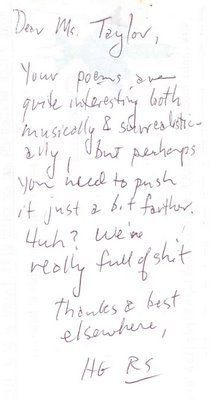 Dear Ms. Taylor,
Your poems are
quite interesting both
musically & surrealistic-
ally, but perhaps
you need to push
it just a bit farther.
Huh? We're
really full of shit
Thanks & best
elsewhere,
HG RS